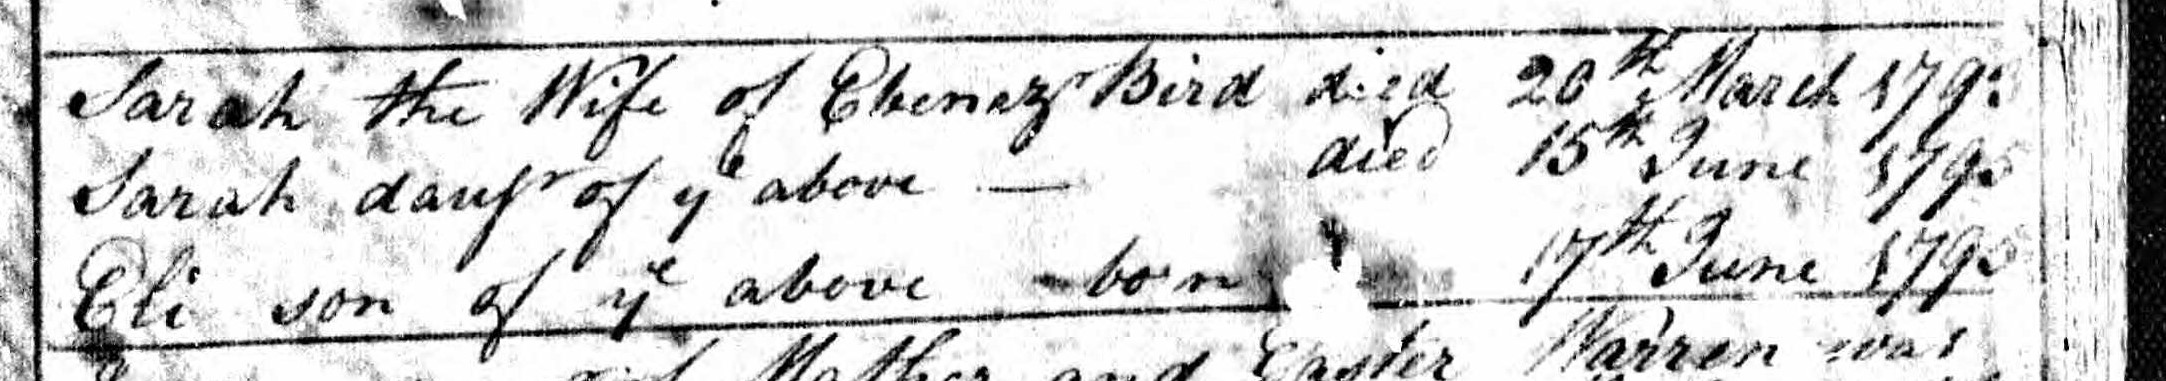 Sarah the Wife of Ebenezr Bird died 20th March 179
Sarah daugr of ye above — died 15th June 179
Eli son of ye above born 17th June 179
of Mather and Easter Warren was